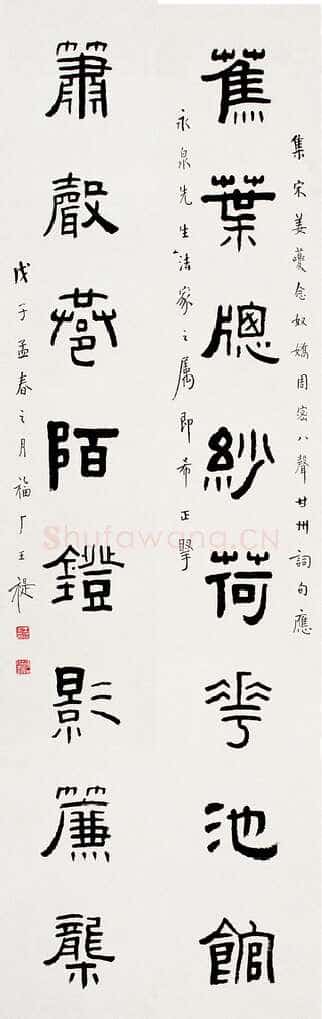 集宋姜夔念奴嬌周密八聲甘州詞句應
蕉葉牕紗荷花池館
永泉先生法家之屬即希正
簫聲巷陌鐙影簾櫳
戊子孟春之月福厂王禔
Shufawang.CN